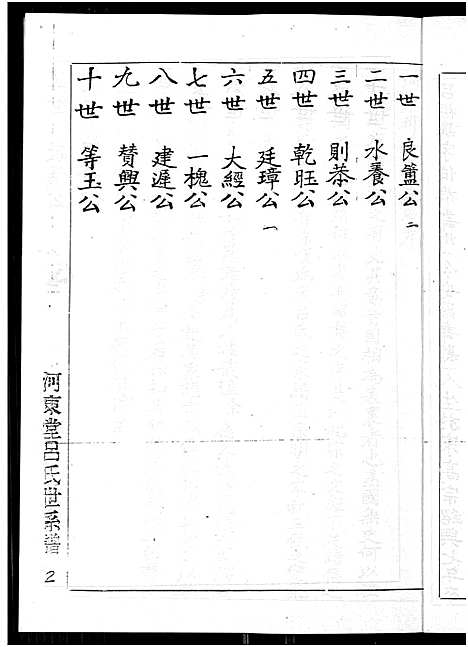 一世 良簠公 二
二世 水養公
三世 則恭公
四世 乾旺公
五世 廷璋公 一
六世 大經公
七世 一槐公
八世 建遲公
九世 贊興公
十世 等玉公
河東堂呂氏世系譜
2